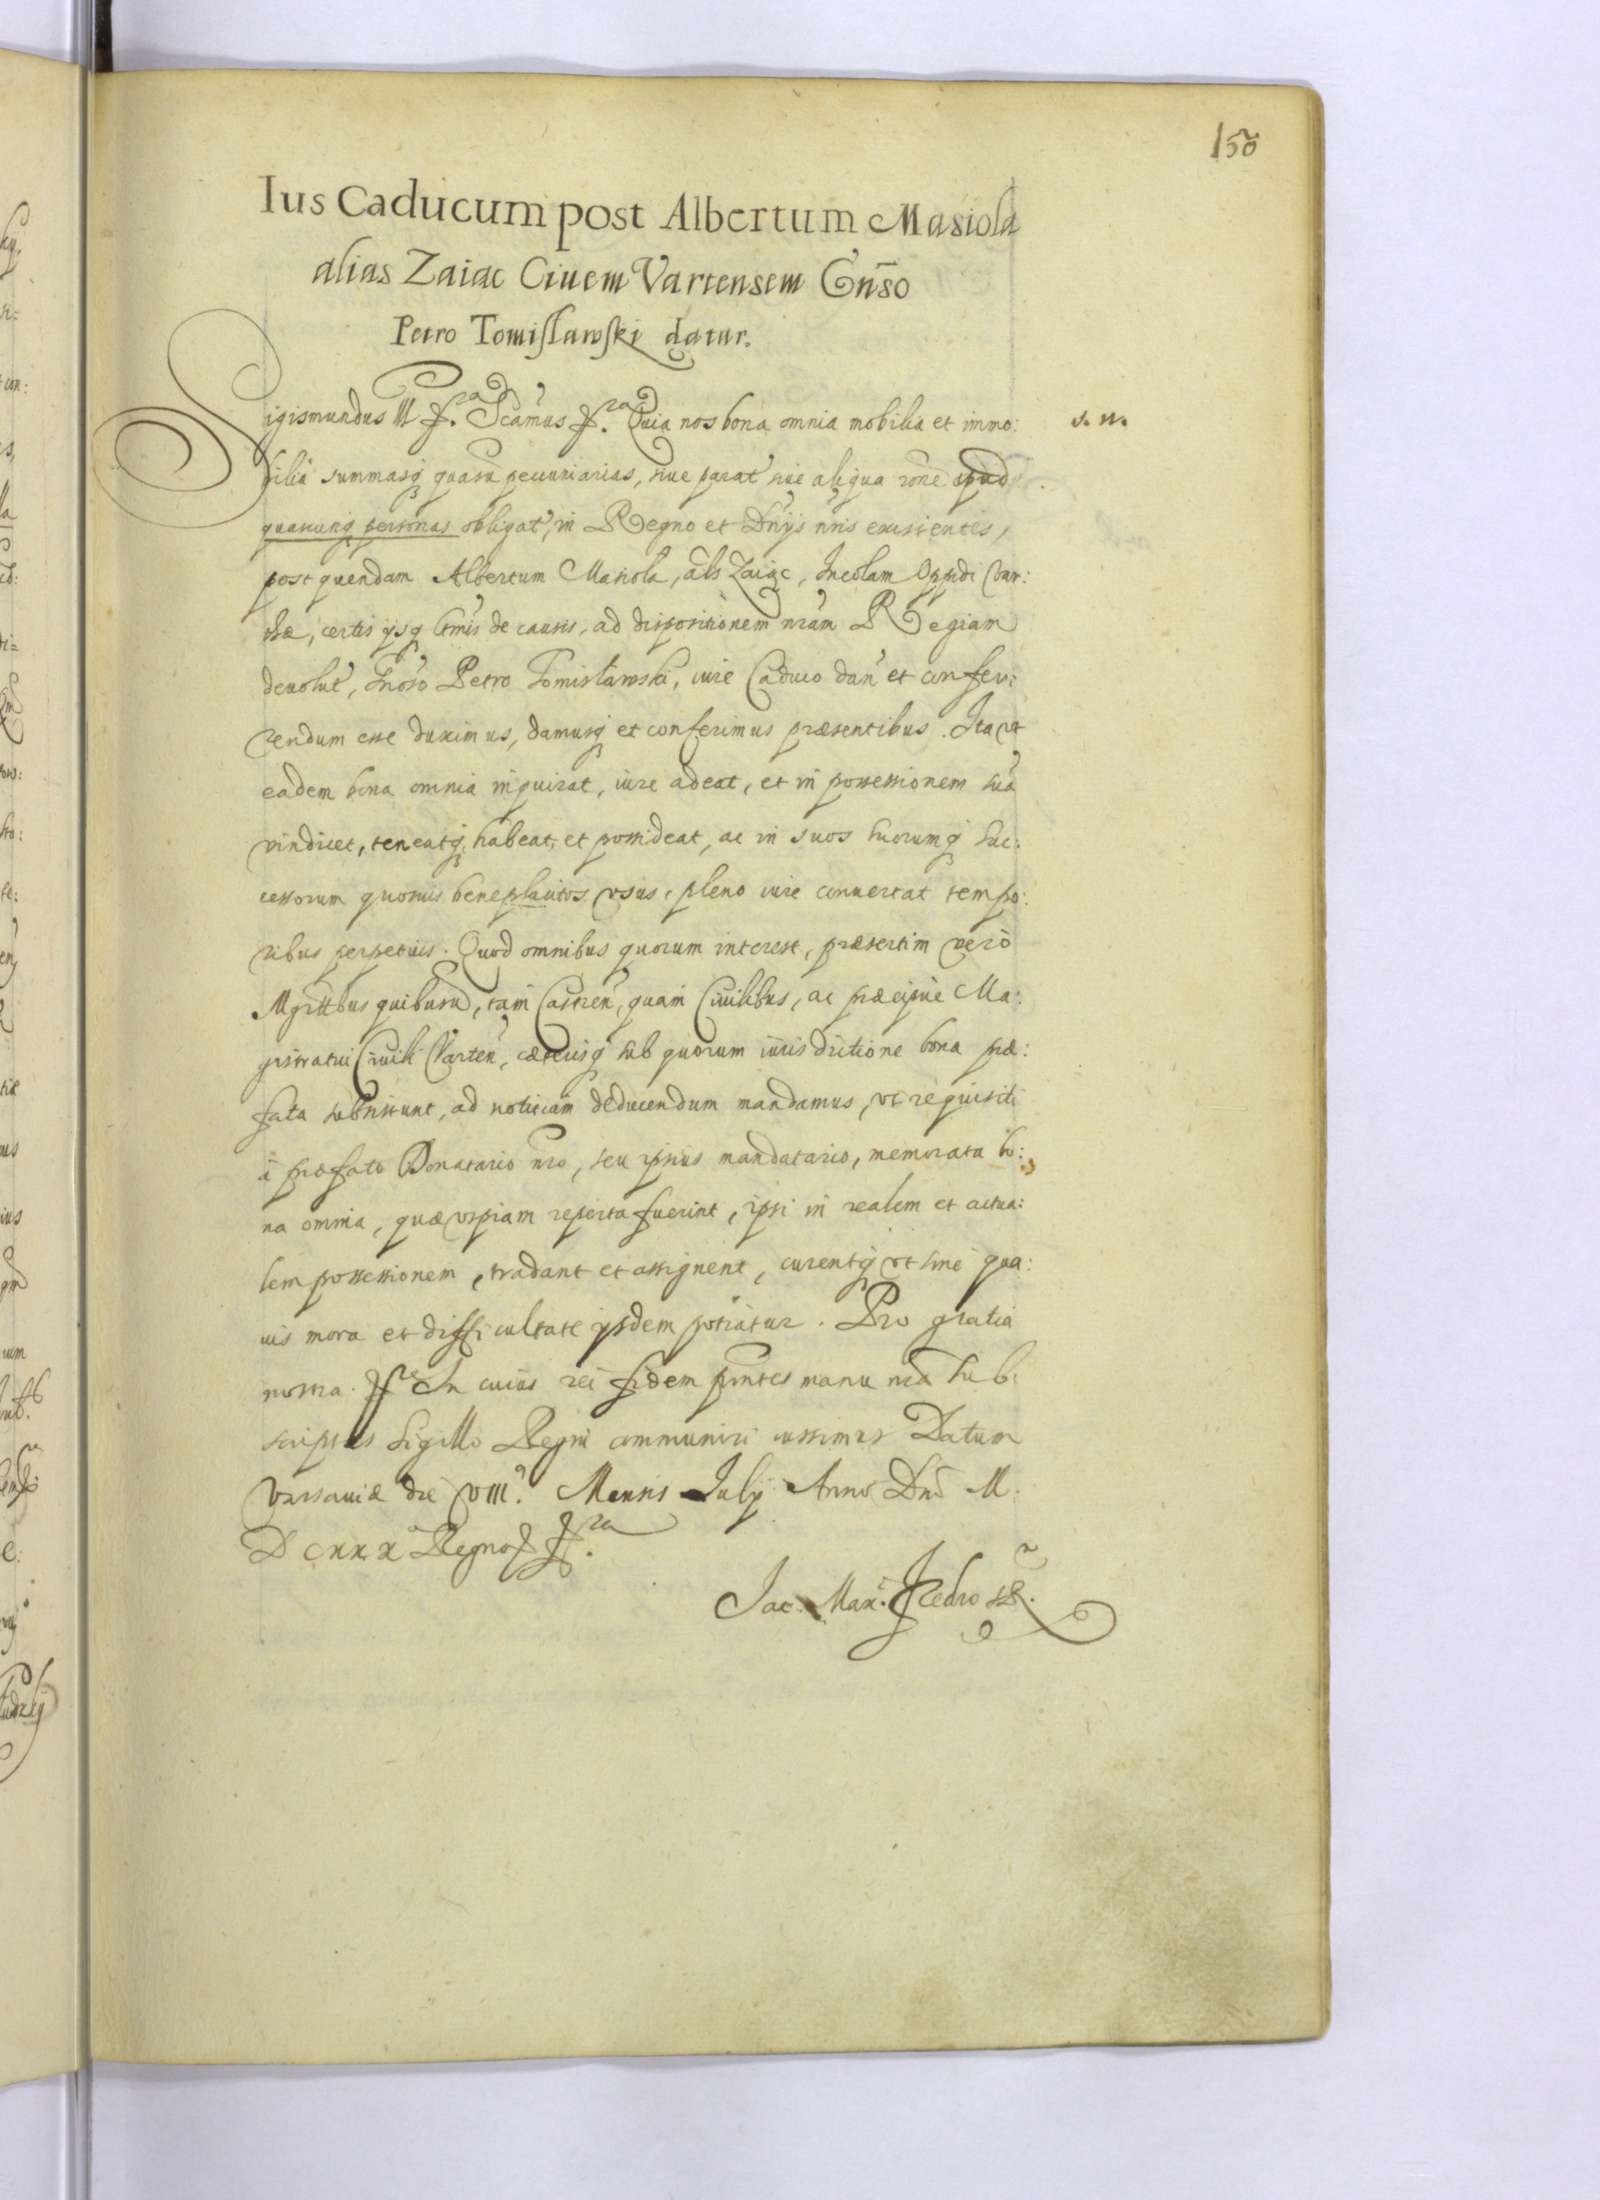 150
Ius Caducum post Albertum Masiola
alias Zaiac Ciuem Vartensem Gnso
Petro Tomisławski datur.
Sigismundus III etc. Scamus etc. Quia nos bona omnia mobilia et immo:
s. n.
bilia summasq quasu pecuniarias, siue parat siue aliqua rone apud
quascunq personas obligat, in Regno et Dnijs nris existentes,
post quendam Albertum Masiola, als Zaiac, Incolam Oppidi Var:
thæ, certis ijsq ltimis de causis, ad dispositionem nram Regiam
deuolut, Gnoso Petro Tomisławski, iure Caduco dan et confer:
rendum esse duximus, damusq et conferimus præsentibus. Ita vt
eadem bona omnia inquirat, iure adeat, et in possessionem sua
vindicet, teneatq, habeat, et possideat, ac in suos suorumq suc:
cessorum quosuis beneplacitos vsus, pleno iure conuertat tempo:
ribus perpetuis. Quod omnibus quorum interest, præsertim verò
Mgrttbus quibusu, tam Castren, quam Ciuilibus, ac præcipuè Ma:
gistratui Ciuili Varten, cæterisq sub quorum iurisdictione bona præ:
fata subsistunt, ad notitiam deducendum mandamus, vt requisiti
à præfato Donatario nro, seu ipsius mandatario, memorata bo:
na omnia, quæ vspiam reperta fuerint, ipsi in realem et actua:
lem possessionem, tradant et assignent, curentq vt sine qua:
uis mora et difficultate ijsdem potiatur. Pro gratia
nostra. In cuius rei fidem pntes manu nra sub:
scriptas Sigillo Regni communiri iussimus Datum
Varsauiæ die VIII. Mensis Julij Anno Dni M.
DCXXX Regnor etc.
Jac. Max. Fredro